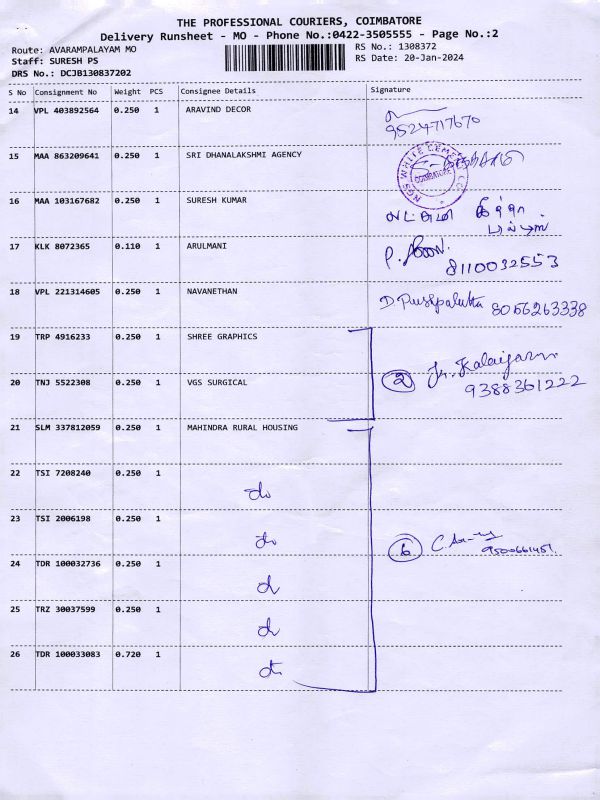 THE PROFESSIONAL COURIERS, COIMBATORE
Delivery Runsheet - MO - Phone No.:0422-3505555 - Page No.:2
Route: AVARAMPALAYAM MO RS No.: 1308372
Staff: SURESH PS RS Date: 20-Jan-2024
DRS No.: DCJB130837202
S No Consignment No Weight PCS Consignee Details Signature
14 VPL 403892564 0.250 1 ARAVIND DECOR
9524717670
15 MAA 863209641 0.250 1 SRI DHANALAKSHMI AGENCY
NGS WHITE CEMENT CO COIMBATORE
16 MAA 103167682 0.250 1 SURESH KUMAR
17 KLK 8072365 0.110 1 ARULMANI P.
8110032553
18 VPL 221314605 0.250 1 NAVANETHAN D Pushpalatha 8056263338
19 TRP 4916233 0.250 1 SHREE GRAPHICS
2 Kalaiyarn
20 TNJ 5522308 0.250 1 VGS SURGICAL 9388361222
21 SLM 337812059 0.250 1 MAHINDRA RURAL HOUSING
22 TSI 7208240 0.250 1
do
23 TSI 2006198 0.250 1
do 6 C. 9500661451.
24 TDR 100032736 0.250 1
d
25 TRZ 30037599 0.250 1
d
26 TDR 100033083 0.720 1
do